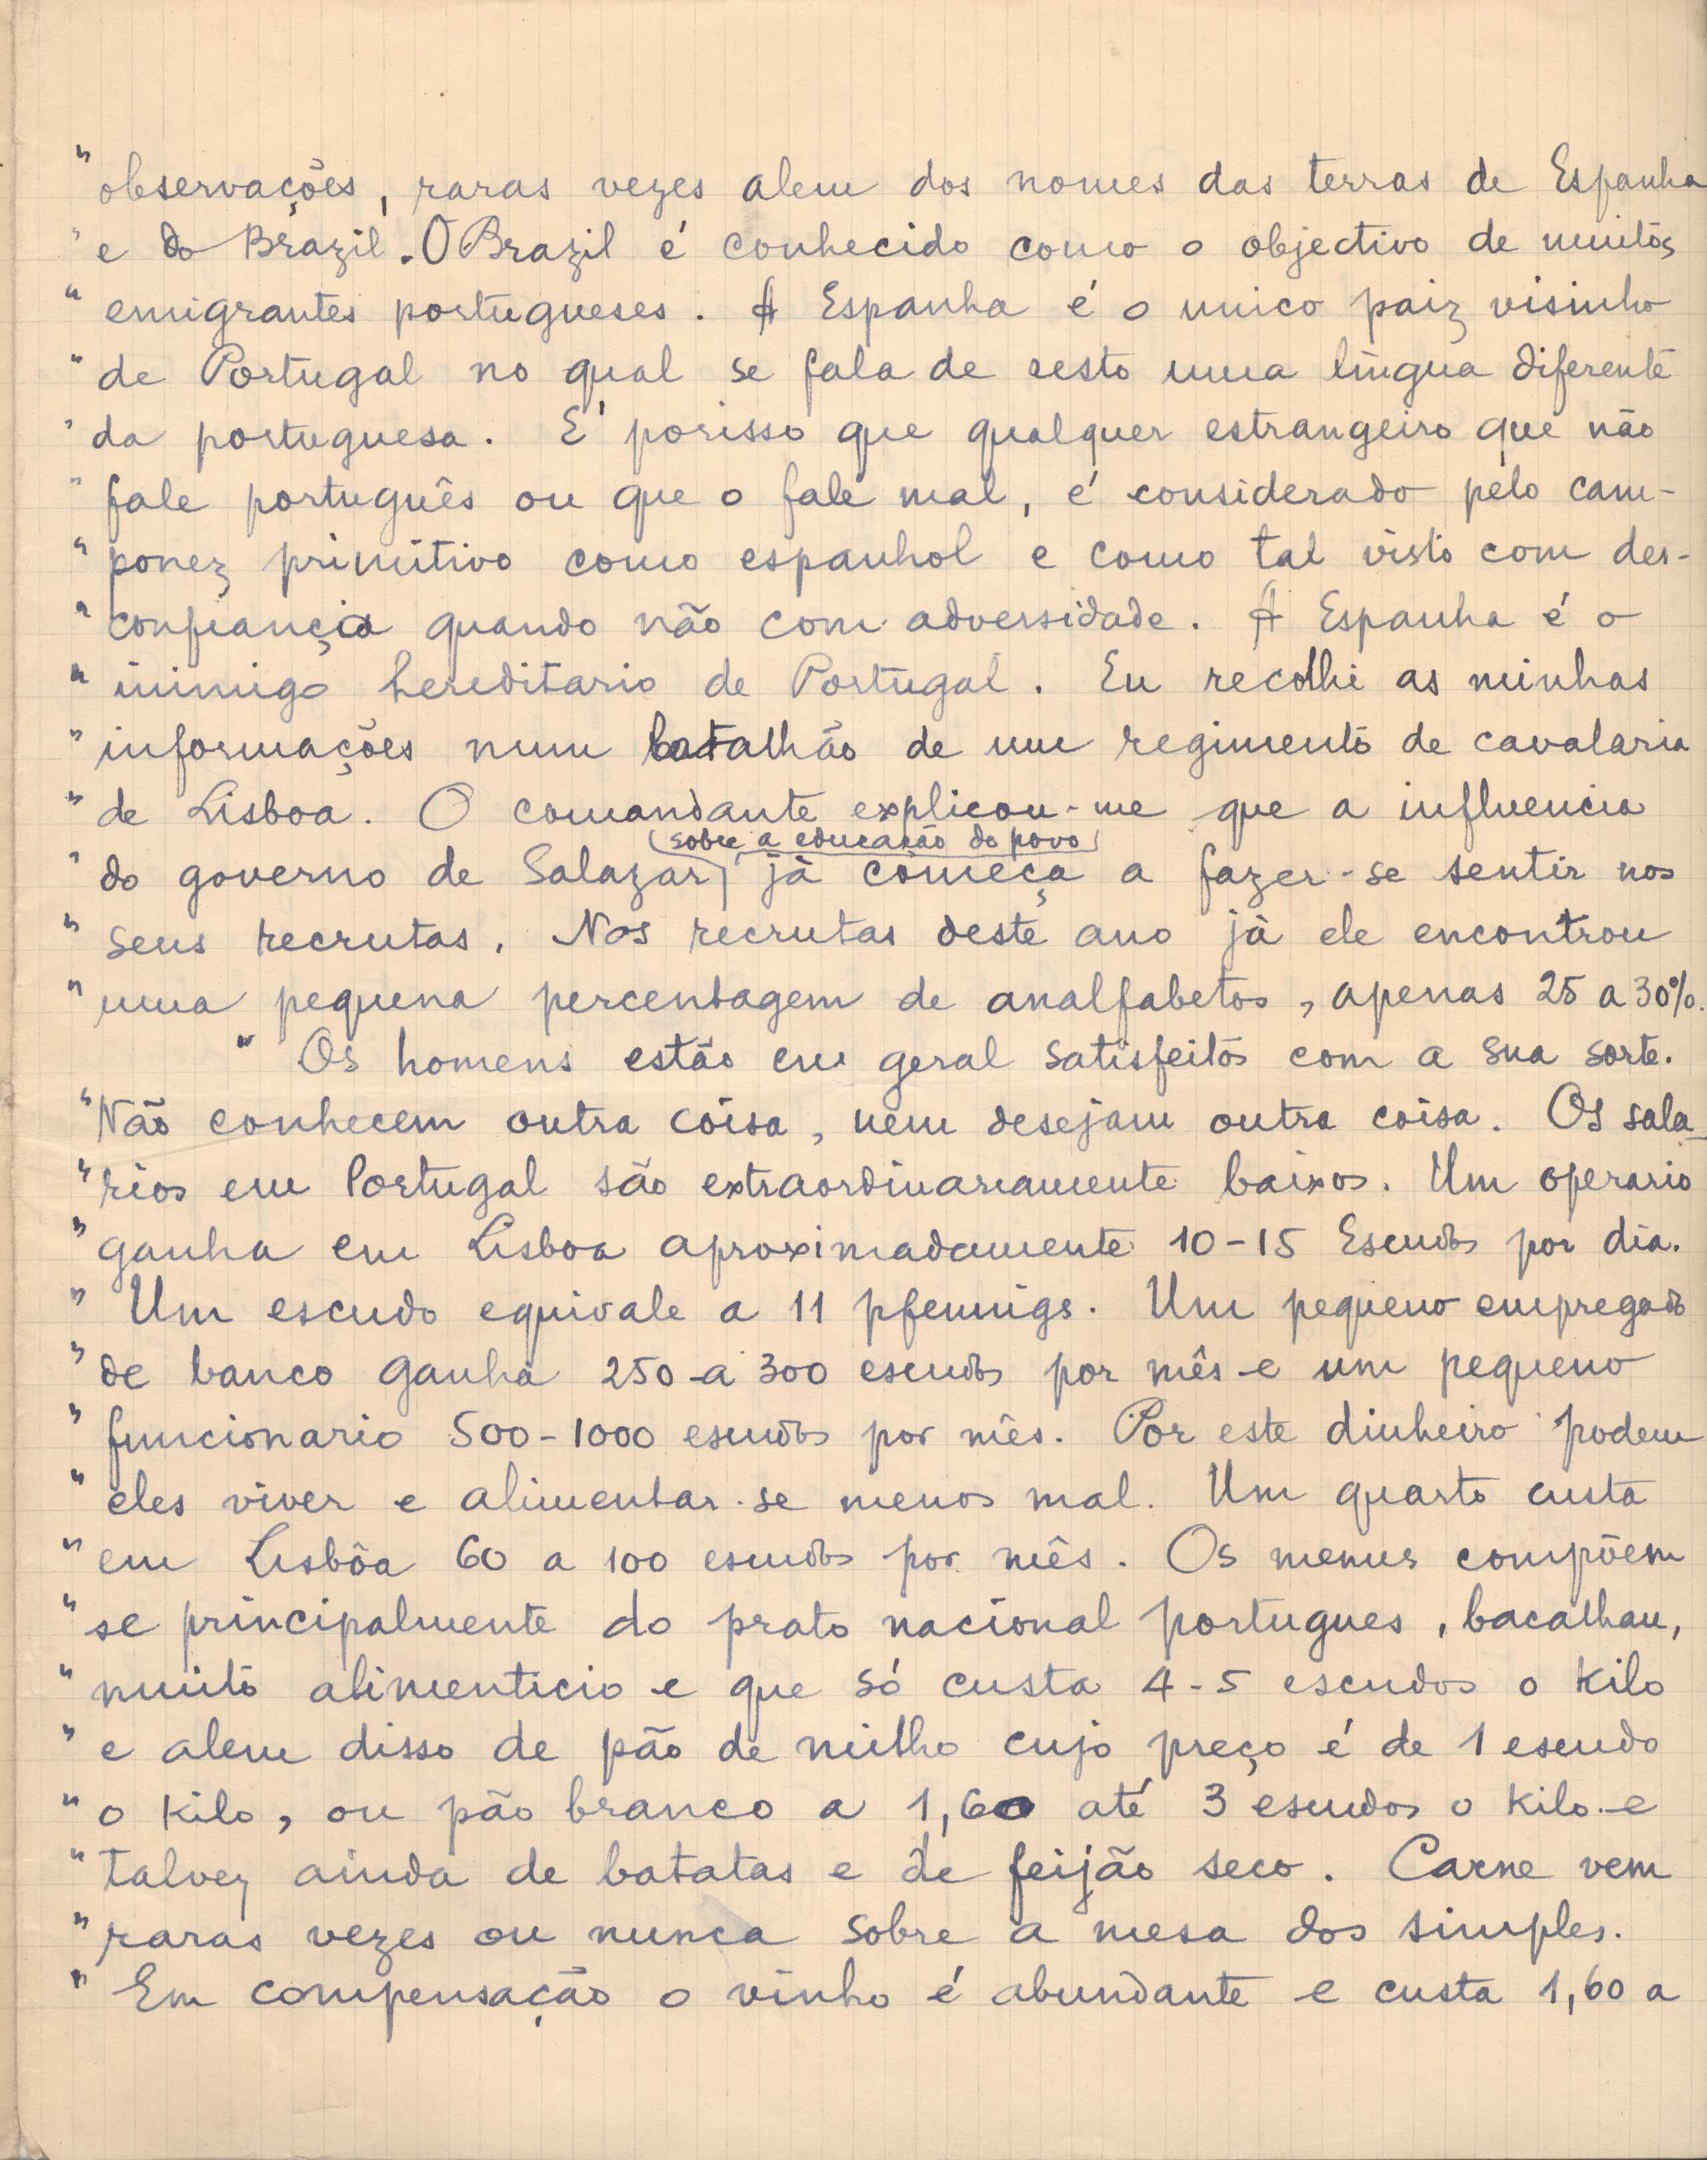 " observações, raras vezes alem dos nomes das terras de Espanha
" e do Brazil. O Brazil é conhecido como o objectivo de muitos
" emigrantes portugueses. A Espanha é o unico paiz visinho
" de Portugal no qual se fala de resto uma lingua diferente
" da portuguesa. É porisso que qualquer estrangeiro que não
" fale português ou que o fale mal, é considerado pelo cam-
" ponez primitivo como espanhol e como tal visto com des-
" confiança quando não com adversidade. A Espanha é o
" inimigo hereditario de Portugal. Eu recolhi as minhas
" informações num batalhão de um regimento de cavalaria
" de Lisboa. O comandante explicou-me que a influencia
sobre a educação do povo
" do governo de Salazar já começa a fazer-se sentir nos
" seus recrutas. Nos recrutas deste ano já ele encontrou
" uma pequena percentagem de analfabetos, apenas 25 a 30%.
" Os homens estão em geral satisfeitos com a sua sorte.
" Não conhecem outra coisa, nem desejam outra coisa. Os sala-
" rios em Portugal são extraordinariamente baixos. Um operario
" ganha em Lisboa aproximadamente 10-15 Escudos por dia.
" Um escudo equivale a 11 pfennigs. Um pequeno empregado
" de banco ganha 250 a 300 escudos por mês e um pequeno
" funcionario 500-1000 escudos por mês. Por este dinheiro podem
" eles viver e alimentar-se menos mal. Um quarto custa
" em Lisbôa 60 a 100 escudos por mês. Os menus compõem
" se principalmente do prato nacional portugues, bacalhau,
" muito alimenticio e que só custa 4-5 escudos o kilo
" e alem disso de pão de milho cujo preço é de 1 escudo
" o kilo, ou pão branco a 1,60 até 3 escudos o kilo e
" talvez ainda de batatas e de feijão seco. Carne vem
" raras vezes ou nunca sobre a mesa dos simples.
" Em compensação o vinho é abundante e custa 1,60 a